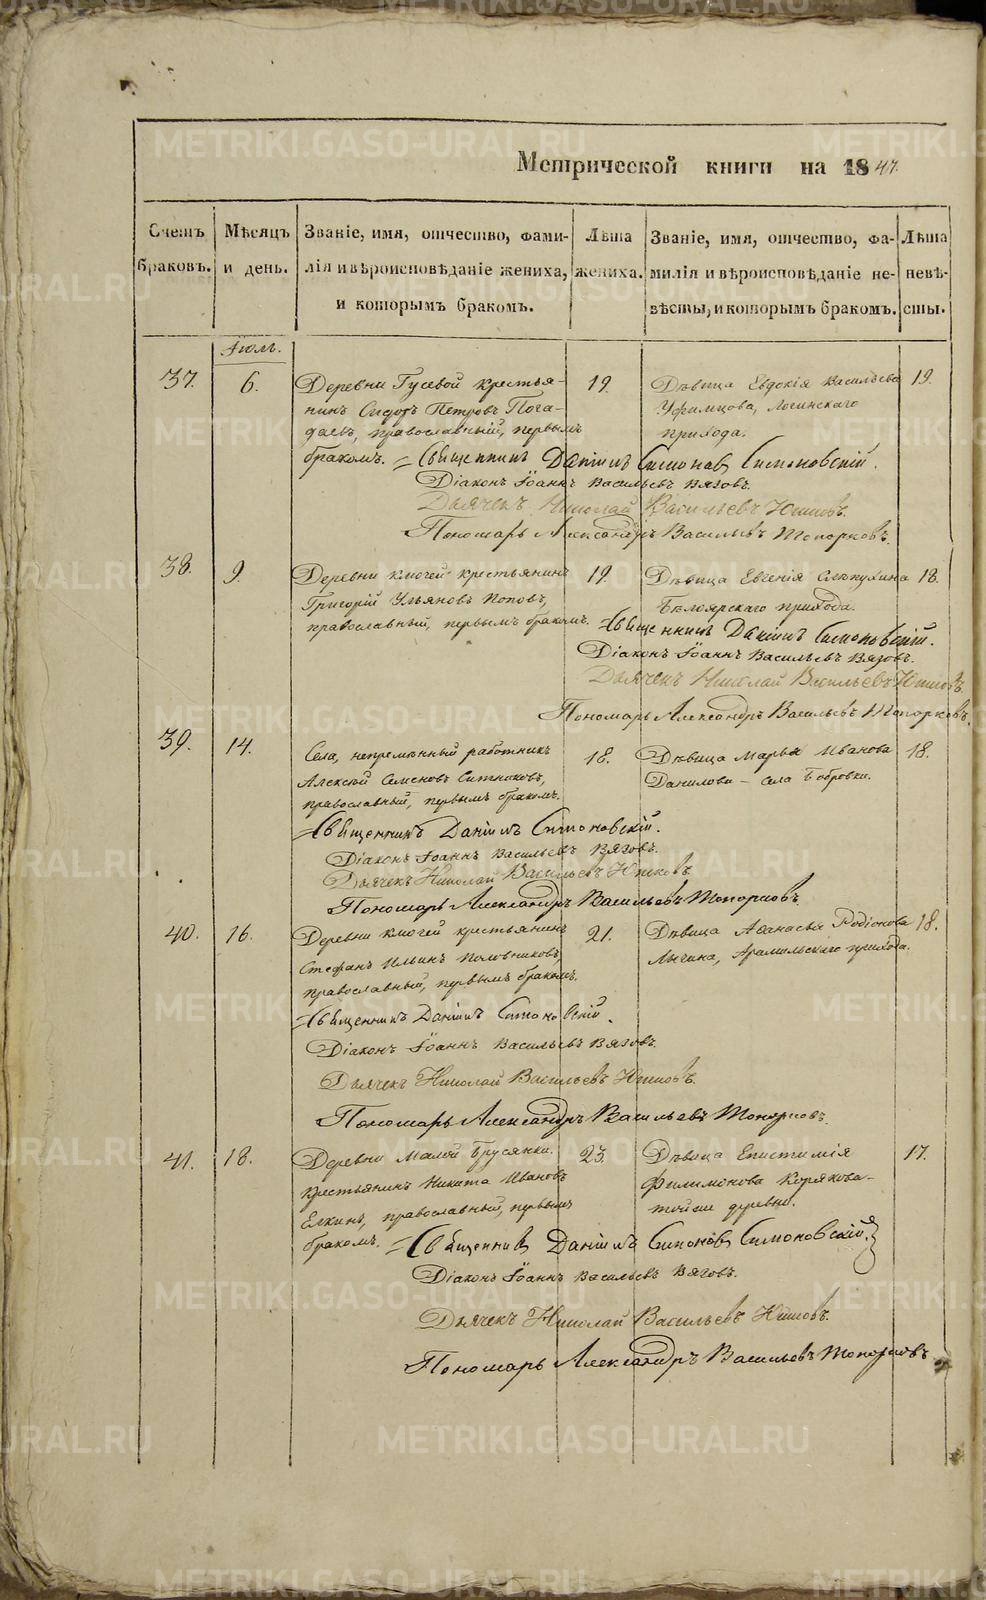 METRIKI.GASO-URAL.RU
Метрической книги на 1847.
Счетъ браковъ.
Мѣсяцъ и день.
Званіе, имя, отчество, фами-
лія и вѣроисповѣданіе жениха,
и которымъ бракомъ.
Лѣта жениха.
Званіе, имя, отчество, фа-
милія и вѣроисповѣданіе не-
вѣсты, и которымъ бракомъ.
Лѣта невѣ-
сты.
Іюль.
37. 6. Деревни Гусевой крестья- 19. Дѣвица Евдокія Васильева 19.
нинъ Сидоръ Петровъ Пога- Уфимцова, Логинскаго
даевъ, православный, первымъ прихода.
бракомъ. = Священникъ Даніилъ Симоновъ Симоновскій.
Діаконъ Іоаннъ Васильевъ Вязовъ.
Дьячекъ Николай Васильевъ
Пономарь Александръ Васильевъ Топорковъ.
38. 9. Деревни Ключей крестьянинъ 19. Дѣвица Евгенія Слѣпухина 18.
Григорій Ульяновъ Поповъ, Бѣлоярскаго прихода.
православный, первымъ бракомъ. = Священникъ Даніилъ Симоновскій.
Діаконъ Іоаннъ Васильевъ Вязовъ.
Дьячекъ Николай Васильевъ
Пономарь Александръ Васильевъ Топорковъ.
39. 14. Села, непремѣнный работникъ 18. Дѣвица Марья Иванова 18.
Алексѣй Семеновъ Ситниковъ, Данилова – села Бобровки.
православный, первымъ бракомъ.
= Священникъ Даніилъ Симоновскій.
Діаконъ Іоаннъ Васильевъ Вязовъ.
Дьячекъ Николай Васильевъ
Пономарь Александръ Васильевъ Топорковъ.
40. 16. Деревни Ключей крестьянинъ 21. Дѣвица Аѳанасья Родіонова 18.
Стефанъ Ильинъ Половниковъ, Лычина, Арамильскаго прихода.
православный, первымъ бракомъ.
= Священникъ Даніилъ Симоновскій.
Діаконъ Іоаннъ Васильевъ Вязовъ.
Дьячекъ Николай Васильевъ
Пономарь Александръ Васильевъ Топорковъ.
41. 18. Деревни Малой Брусянки. 23. Дѣвица Епистимія 17.
крестьянинъ Никита Ивановъ Филимонова Корякова –
Елкинъ, православный, первымъ той же деревни.
бракомъ. = Священникъ Даніилъ Симоновъ Симоновскій.
Діаконъ Іоаннъ Васильевъ Вязовъ.
Дьячекъ Николай Васильевъ
Пономарь Александръ Васильевъ Топорковъ